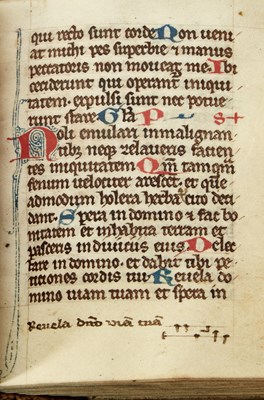 qui recto sunt corde Non veni
at michi pes superbie & manus
peccatoris non moveat me. Ibi
ceciderunt qui operant iniqui
tatem. expulsi sunt nec potue
runt stare Gla P S +
Noli emulari in malignan
tibz neqz zelaveris facien
tes iniquitatem Qm tamqm
fenum velociter arescet. et que
admodum holera herbar cito deci
dant. Spera in domino & fac bo
nitatem et inhabita terram et
pasceris in diviciis eius Delec
tare in domino. et dabit tibi pe
titiones cordis tui Revela do
mino viam tuam et spera in
Revela dno viam tuam